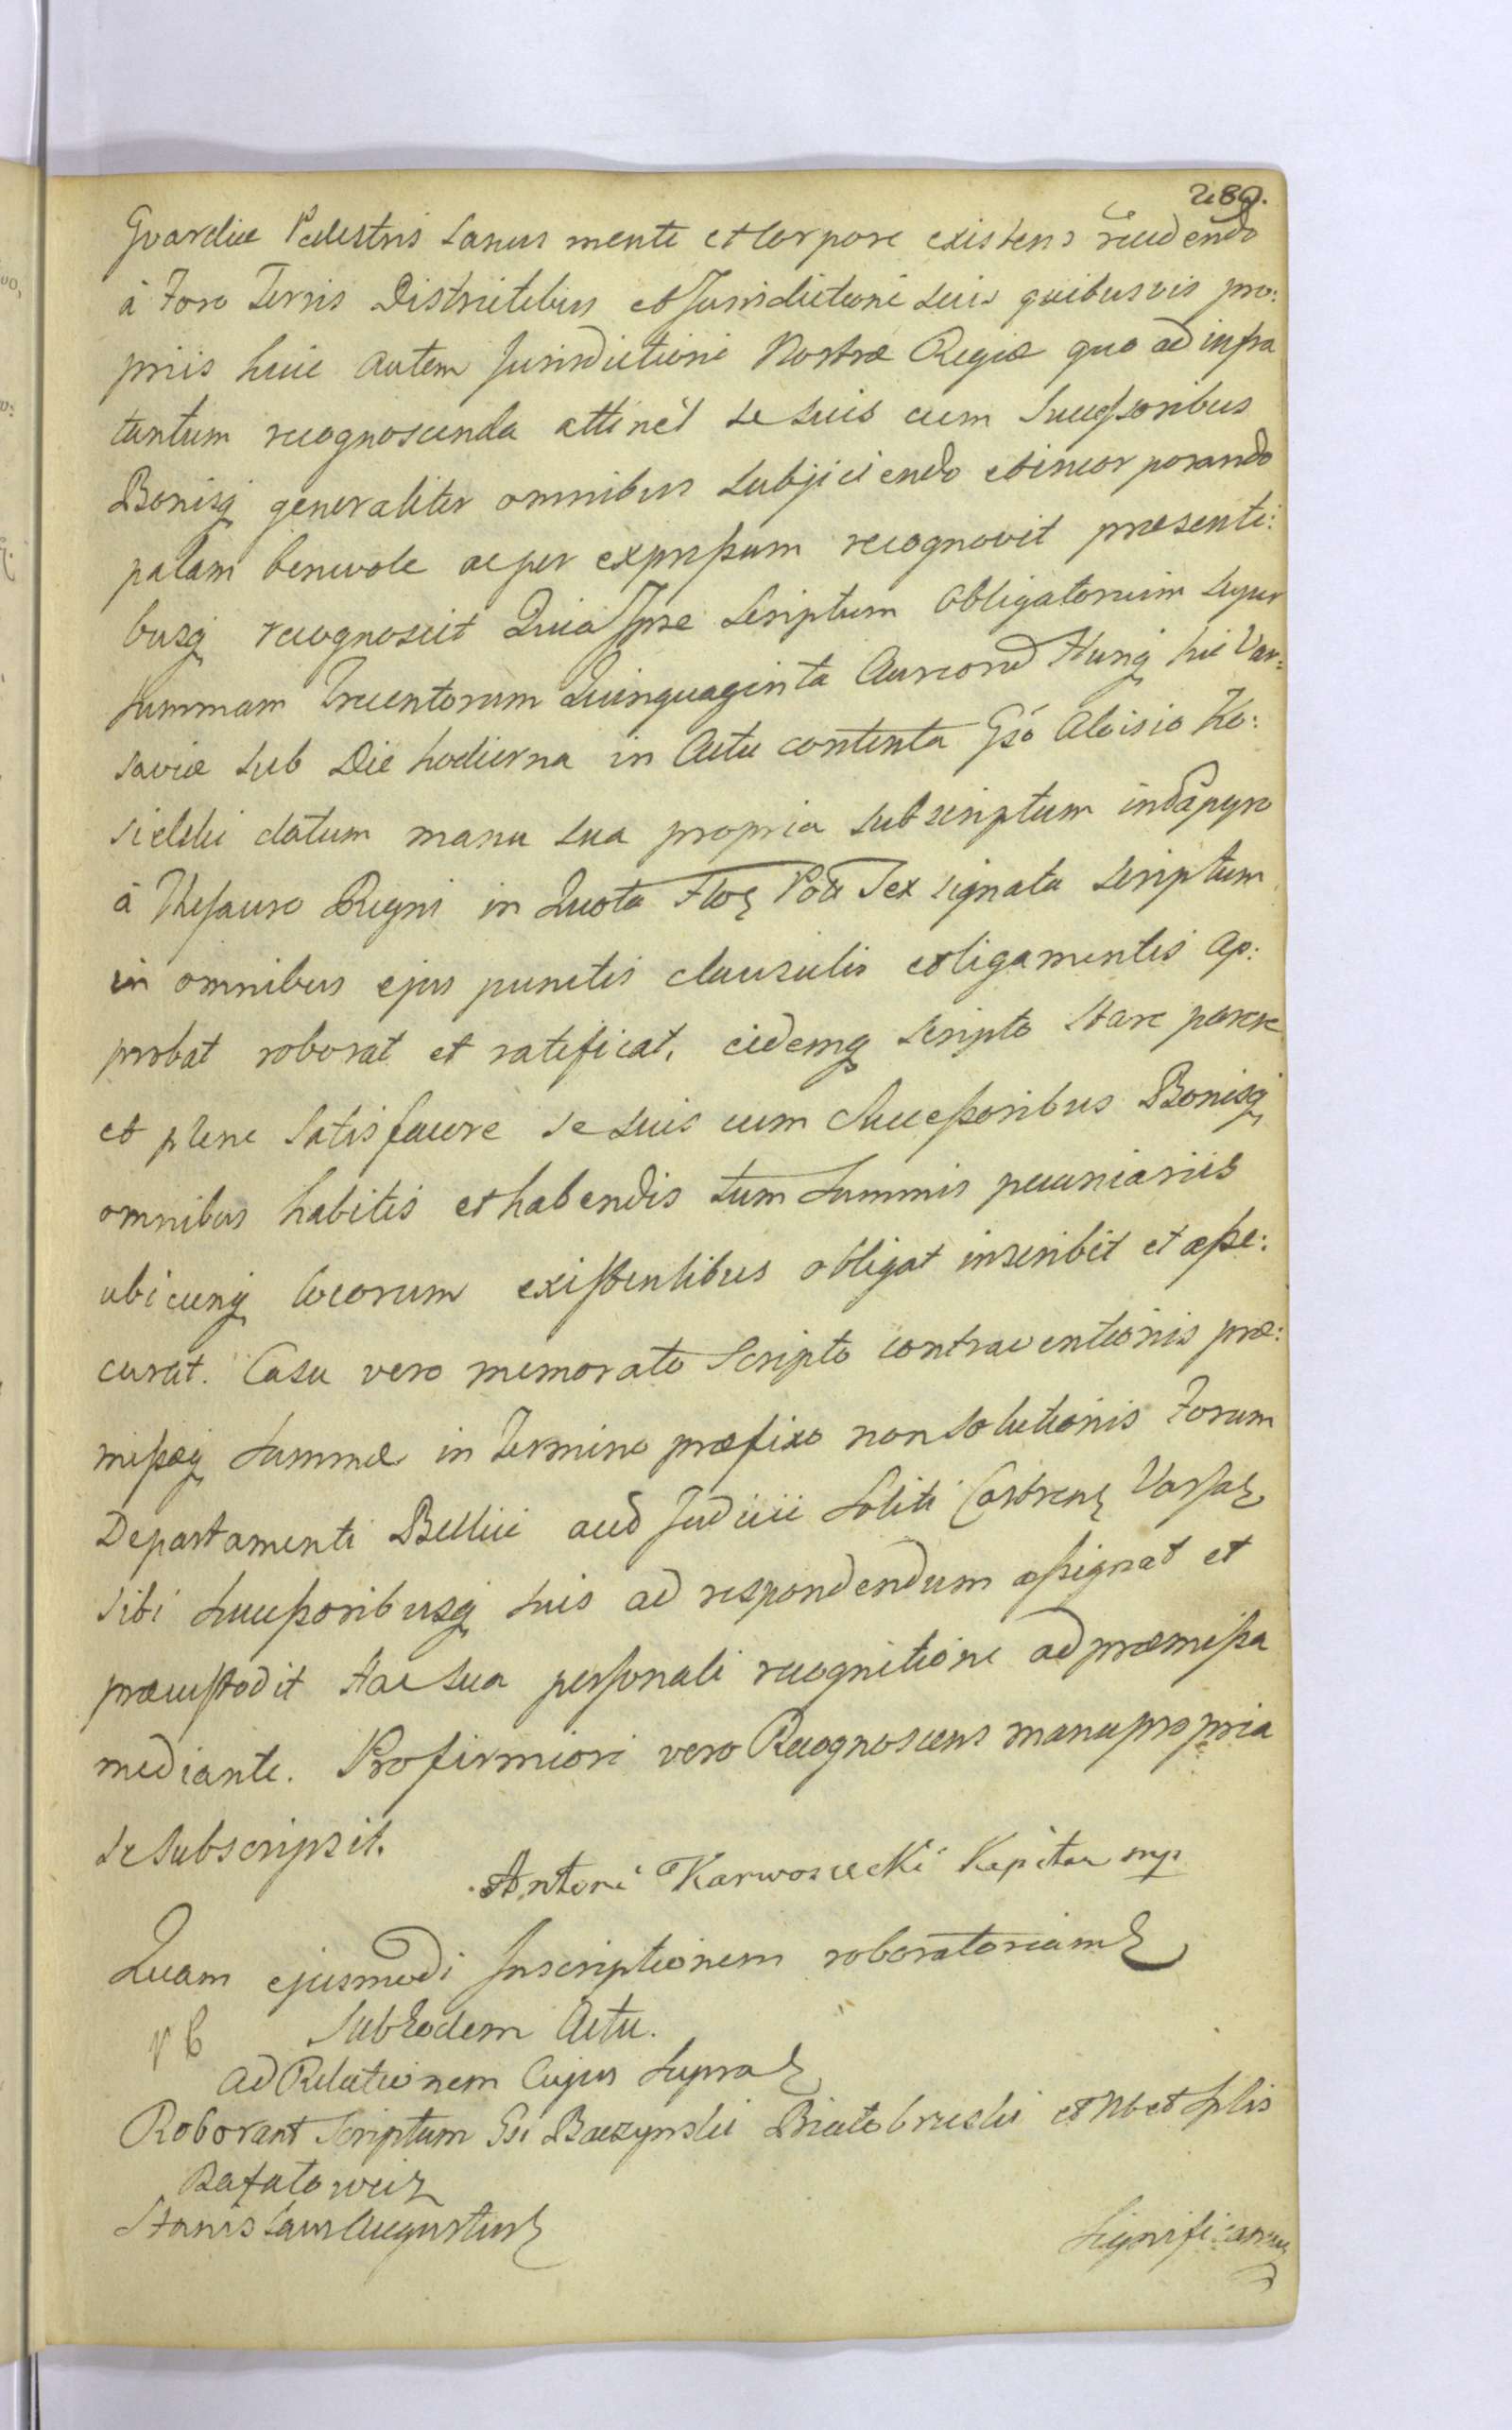 289.
Gvardiæ Pedestris Sanus mente et Corpore existens recedendo
à Foro Terris Districtibus et Jurisdictione suis quibusvis pro:
priis huic autem Jurisdictioni Nostræ Regiæ quo ad infra
tantum recognoscenda attinet se suis cum Successoribus
Bonisq generaliter omnibus subjiciendo et incorporando
palam benevole ac per expressum recognovit præsenti:
busq recognoscit Quia Ipse Scriptum obligatorium super
summam Trecentorum Quinquaginta Aureord Hung hic Var:
saviæ sub Die hodierna in Actu contenta Gso Aloisio Ko:
sielski datum manu sua propria subscriptum inda papyro
à Thesauro Regni in Quota Flor Pol Sex signata scriptum
in omnibus ejus punctis clausulis et ligamentis ap:
probat roborat et ratificat, eidemq scripto stare parere
et plene Satisfacere se suis cum Successoribus Bonisq
omnibus habitis et habendis tum Summis pecuniariis
ubicunq locorum existentibus obligat inscribit et asse:
curat. Casu vero memorato Scripto contraventionis præ:
missæq Summæ in Termino præfixo non Solutionis Forum
Departamenti Bellici aud Judicii Soliti Castrens Varsav
sibi Successoribusq suis ad respondendum assignat et
præcustodit Hac sua personali recognitione ad præmissa
mediante. Pro firmiori vero Recognoscens manu propria
se Subscripsit.
Antoni Karwosiecki Kapitan mp
Quam ejusmodi Inscriptionem roboratoriam
Sub Eodem Actu.
Ad Relationem Cujus Supra
Roborant Scriptum Gsi Baczynski Białobrzeski et Nb et Splis
Rafałowicz
Stanislaus Augustus
Significamus